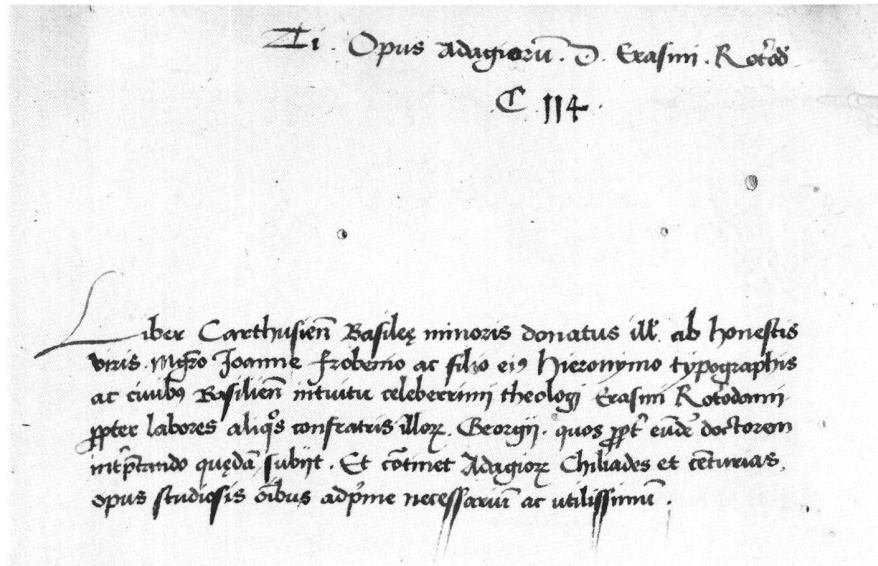 Ti. Opus Adagiorū. D. Erasmi. Rot̄od
C 114.
Liber Carthusien̄ Basileę minoris donatus ill'. ab honestis
viris. Mgr̄o Joanne Frobenio ac filio eiꝰ Hieronymo typographis
ac ciuibꝰ Basilien̄ intuitu celeberrimi theologi Erasmi Rot̄odami
ꝓpter labores aliq̄s confratris illoꝝ. Georgii. quos ꝓpt̄ eūdē doctorem
int̄p̄tando quędā subijt. Et cōtinet Adagioꝝ Chiliades et cēturias,
opus studiosis ōibus adp̄me necessariū ac utilissimū.